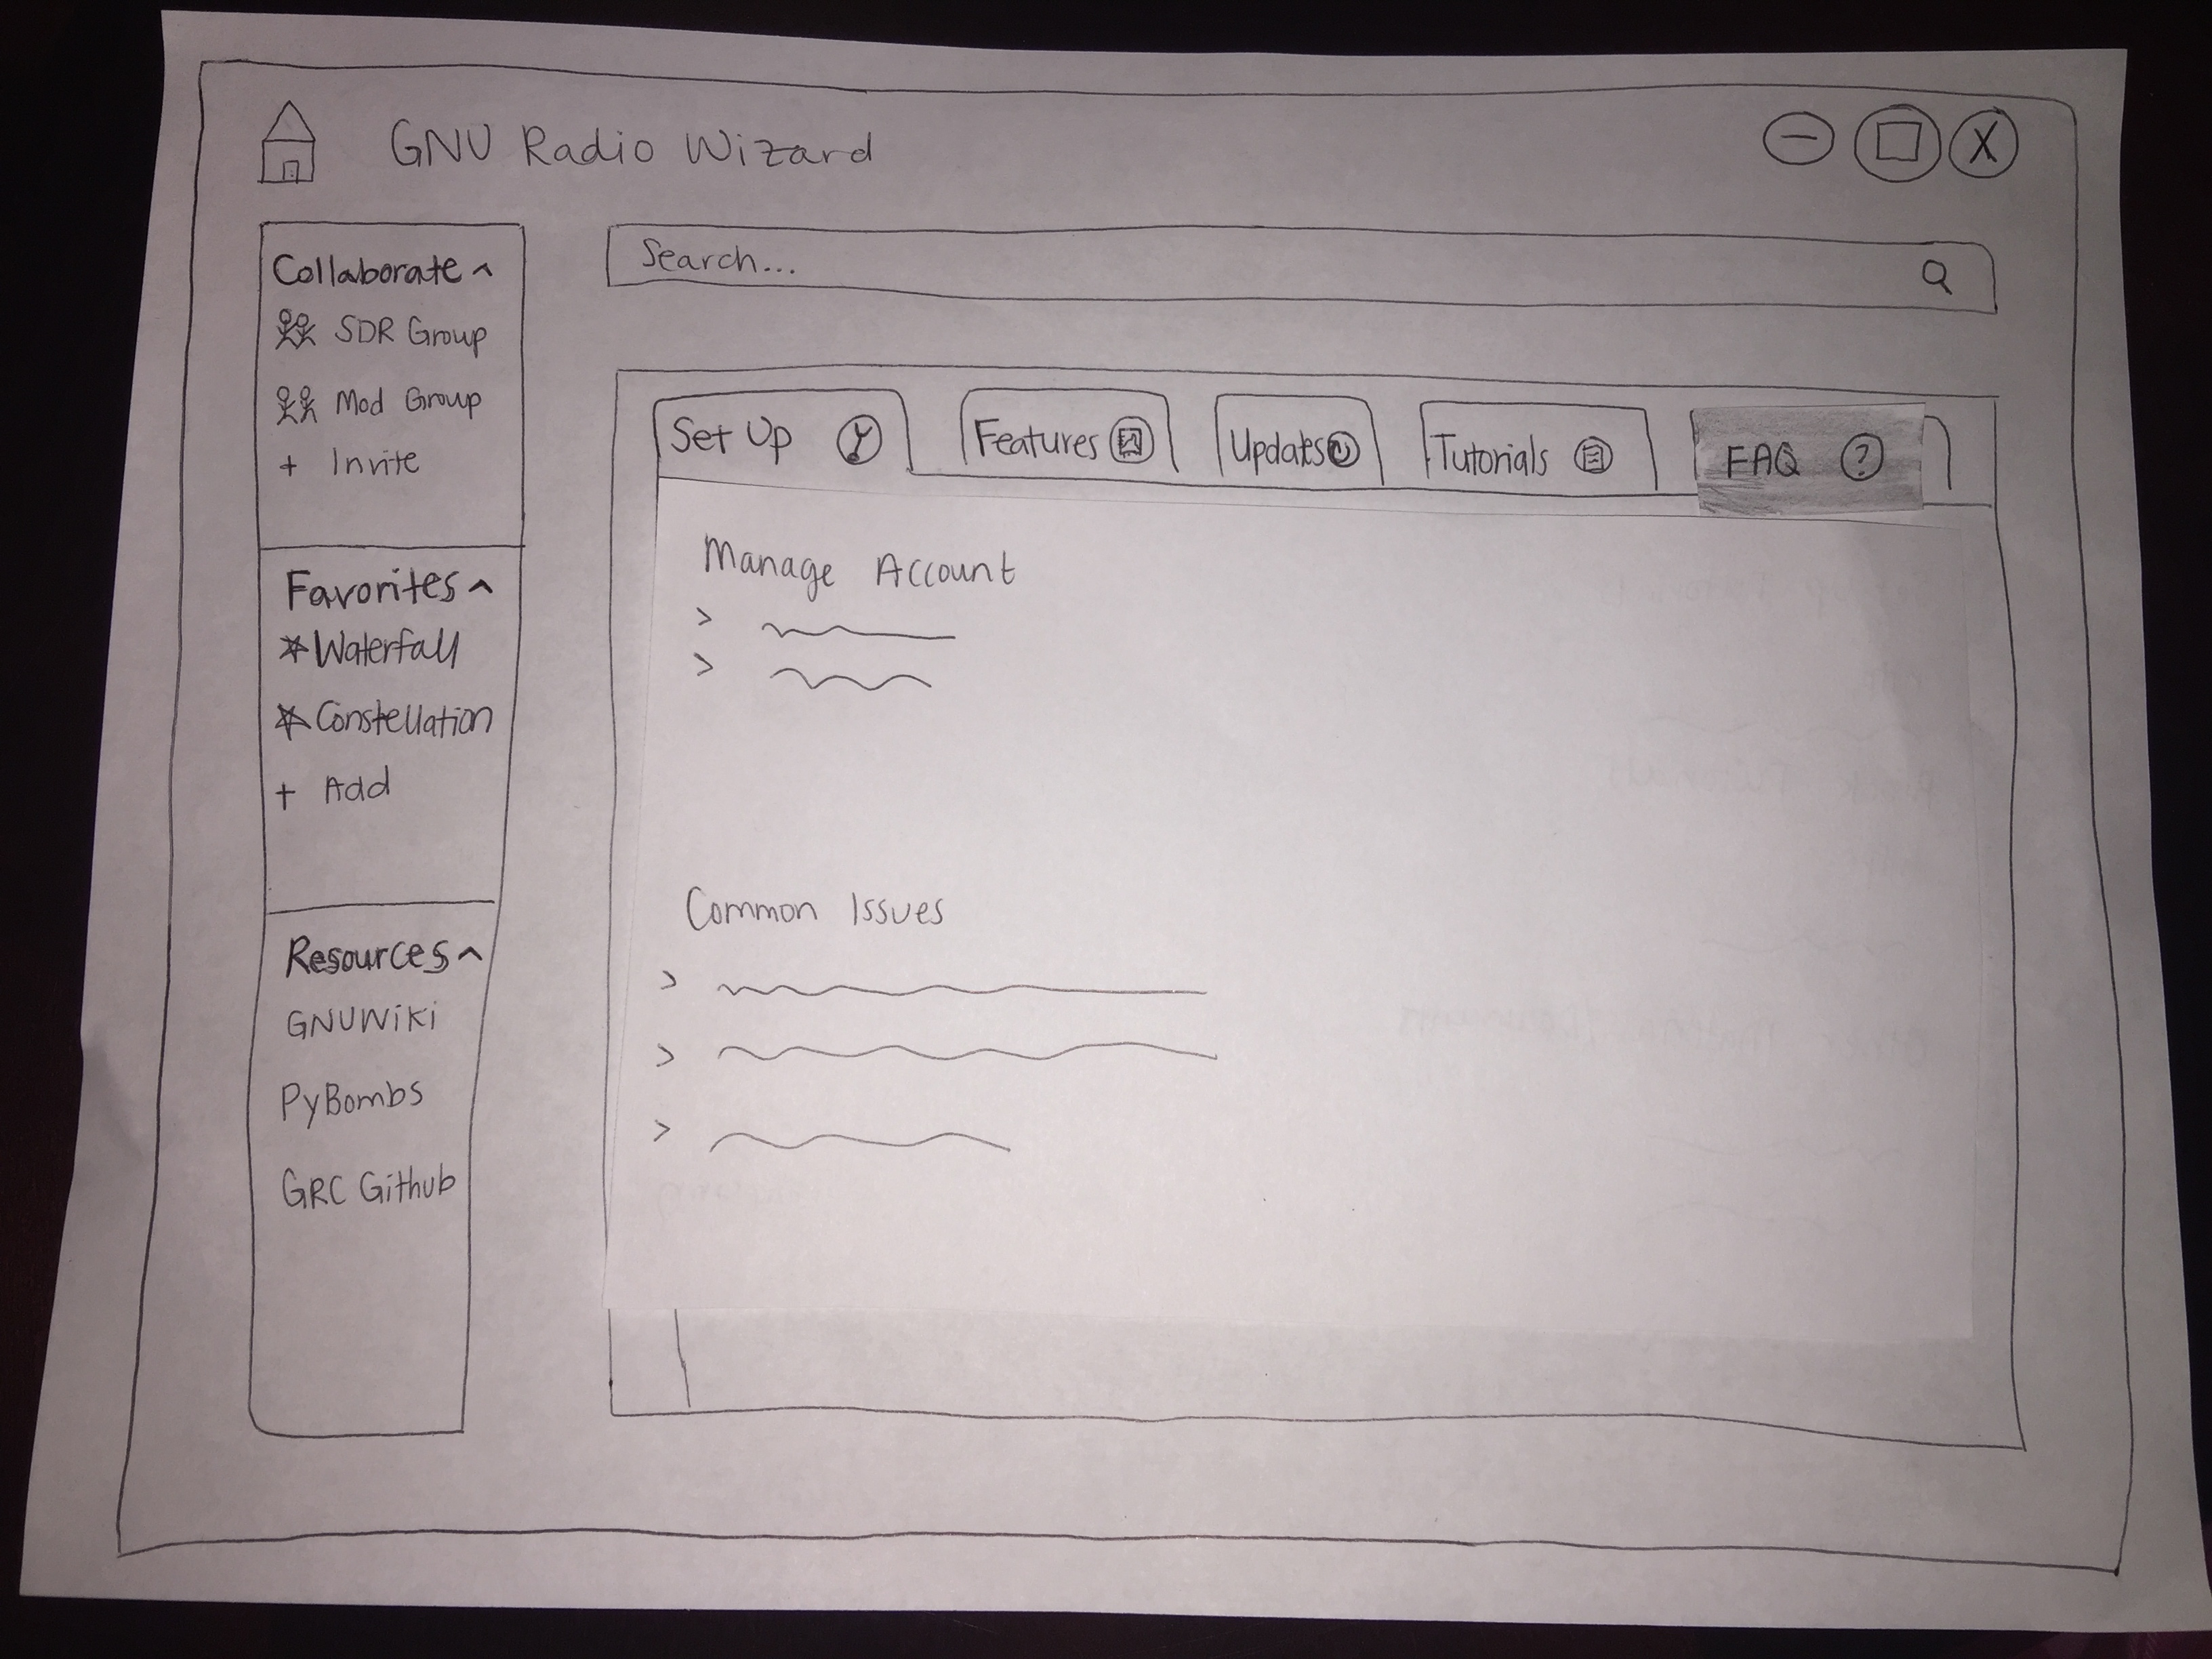 GNU Radio Wizard
Collaborate ^
SDR Group
Mod Group
+ Invite
Favorites ^
Waterfall
Constellation
+ Add
Resources ^
GNUWiki
PyBombs
GRC Github
Search...
Set Up
Features
Updates
Tutorials
FAQ ?
Manage Account
>
>
Common Issues
>
>
>